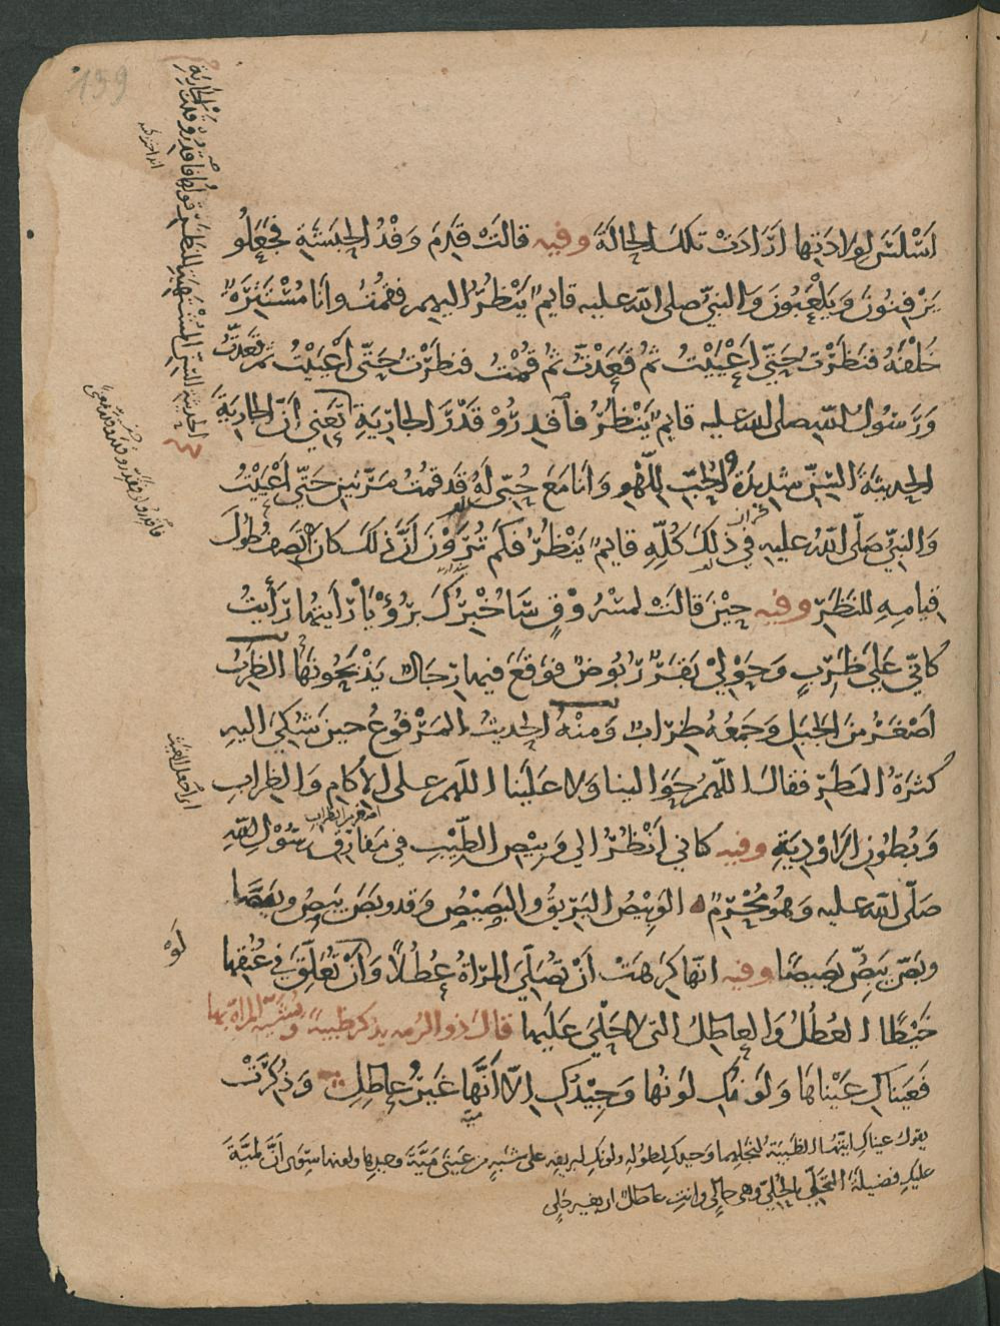 اَسْلَسَ لِوِلادَتِها اَرَادَتْ تلك الحالةَ وفيه قالَتْ قَدِمَ وَفْدُ الحبشَةِ فجَعَلُو
يَزْفِنُونَ وَيَلْعَبُونَ وَالنبىّ صلى الله عليه قايمٌ يَنْظُرُ اليهم فقمتُ وانَا مُسْتَتِرَةٌ
خَلْفَهُ فنظَرْتُ حتّى اَعْيَيْتُ ثُمّ قَعَدْتُ ثُمّ قُمْتُ فنظرْتُ حتّى اَعْيَيْتُ ثمّ قعَدتُّ
وَرَسُولُ اللهِ صلى الله عليه قايمٌ يَنْظُرُ فَاقدِرُوْ قَدْرَ الجارِيَةِ تَعْنى اَنّ الجاريَةَ
الحديثةَ السِّنِّ شديدةُ الحُبّ لِلَّهْوِ وَانَا مَعَ حُبّى لَهُ قد قمتُ مَرّتينِ حَتّى اَعْيَيْتُ
وَالنبىّ صَلّى اللهُ عليه فى ذلِكَ كُلِّهِ قايمٌ يَنْظُرُ فكَم تُرَوْنَ اَنَّ ذلكَ كانَ تصف طُولَ
قيامِهِ للنَظَرِ وفيه حِيْنَ قالَتْ لمَسْرُوْقٍ سَاُخْبِرُكَ برُؤْيَا رَاَيتُها رَاَيتُ
كاَنّى عَلَى ظَرِبٍ وَحَوْلِىْ بَقَرٌ رُبُوضٌ فوَقَعَ فيها رِجَالٌ يَذْبَحُونَهَا الظَرِبُ
اَصْغَرُ مِنَ الجَبَلِ وَجَمعُهُ ظِرَابٌ وَمنْهُ الحديثُ المَرْفُوعُ حينَ شُكِىَ اليهِ
كثرَةُ المَطَرِ فقالَ اللّهُمّ حَوَالينا وَلا عَلَينَا اللّهم على الاكامِ وَالظِرابِ
وَبُطُونِ الاَوْدِيَةِ وفيه كانى اَنْظُرُ الى وَبِيْصِ الطّيْبِ فى مَفارِقِ رَسُوْلِ اللهِ
صَلّى الله عليه وَهُوَ مُحْرِمٌ الوَبِيْصُ البَرِيقُ والبَصِيْصُ وَقد وبَصَ يَبِصُ وبيصًا
وبَصّ يَبِصُّ بَصيصًا وفيه انّها كَرِهَتْ اَنْ تُصَلّىَ المَرْاَةُ عُطُلًا وَاَنْ تُعَلِّقَ فى عُنُقِها
خَيْطًا العُطُلُ وَالعاطِلُ التى لا حَلْىَ عَلَيها قال ذو الرمه يذكر ظبيةً وشبّه المراة بها
فَعَيناكِ عَيْنَاهَا وَلَونُكِ لَونُها وَجِيْدُكِ اِلّا اَنَّهَا غَيرُ عاطِلِ وَذُكِرَتْ
يقول عيناكِ ايتها الظبية وجيدكِ لطوله ولونكِ لبريقه على شبهٍ من عينى مَيّةَ وجيدِها ولونها سِوَى اَنّ لِمَيّةَ
عليكِ فضيلَةَ التحَلّى بالحُلِىّ وهى حالِى وانتِ عاطلٌ اى بغير حَلى